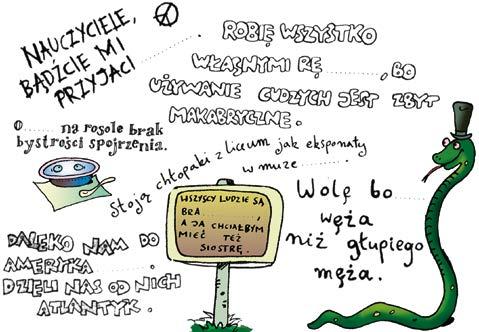 NAUCZYCIELE,
BĄDŹCIE MI
PRZYJACI ........ .
ROBIĘ WSZYSTKO
WŁASNYMI RĘ ........, BO
UŻYWANIE CUDZYCH JEST ZBYT
MAKABRYCZNE.
O ........ na rosole brak
bystrości spojrzenia.
Stoją chłopaki z liceum jak eksponaty
w muze ........ .
WSZYSCY LUDZIE SĄ
BRA ........,
A JA CHCIAŁBYM
MIEĆ TEŻ
SIOSTRĘ.
Wolę bo ........
węża
niż głupiego
męża.
DALEKO NAM DO
AMERYKA ........ .
DZIELI NAS OD NICH
ATLANTYK.